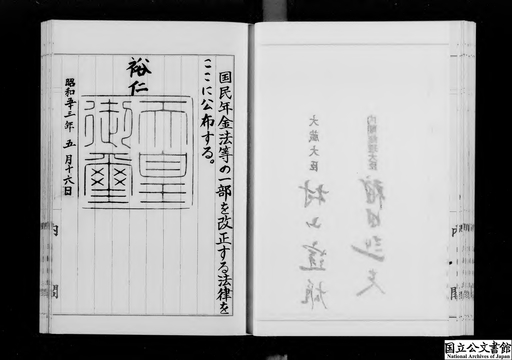 国民年金法等の一部を改正する法律を
ここに公布する。
裕仁
天皇
御璽
昭和五十三年五月十六日
内閣
内閣総理大臣
福田赳夫
大蔵大臣
村山達雄
内閣
国立公文書館
National Archives of Japan